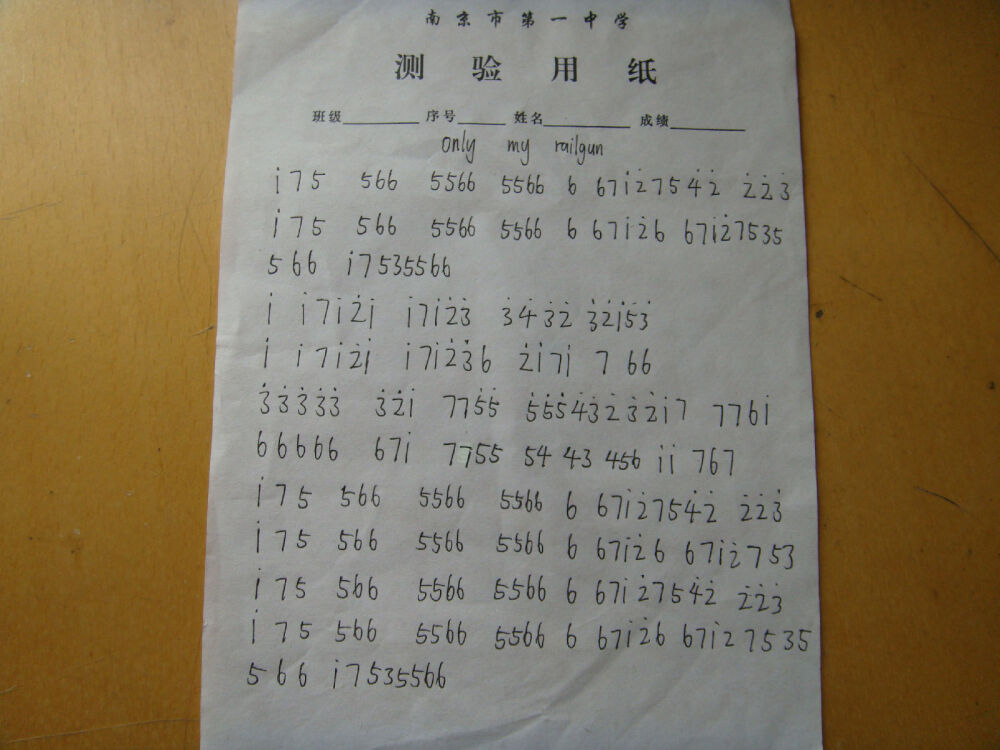 南京市第一中学
测验用纸
班级________ 序号_____ 姓名_________ 成绩________
only my railgun
i̇ 7 5 566 5566 5566 6 67i̇2̇754̇2̇ 2̇2̇3̇
i̇ 7 5 566 5566 5566 6 67i̇2̇6 67i̇2̇7535
5 6 6 i̇7535566
i̇ i̇7i̇2̇i̇ i̇7i̇2̇3̇ 3̇4̇3̇2̇ 3̇2̇i̇53̇
i̇ i̇7i̇2̇i̇ i̇7i̇2̇3̇6 2̇i̇7i̇ 7 66
3̇3̇3̇3̇3̇ 3̇2̇i̇ 775̇5̇ 5̇5̇5̇4̇3̇2̇3̇2̇i̇7 776i̇
66666 67i̇ 7755 54 43 456 i̇i̇ 767
i̇ 7 5 566 5566 5566 6 67i̇2̇754̇2̇ 2̇2̇3̇
i̇ 7 5 566 5566 5566 6 67i̇2̇6 67i̇2̇753
i̇ 7 5 566 5566 5566 6 67i̇2̇754̇2̇ 2̇2̇3̇
i̇ 7 5 566 5566 5566 6 67i̇2̇6 67i̇2̇7535
5 6 6 i̇7535566